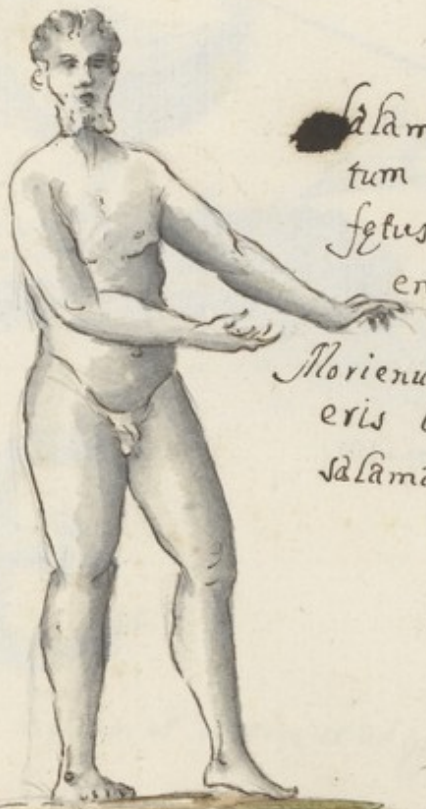 salam
tum
fętus
er
Morienu
eris
salama